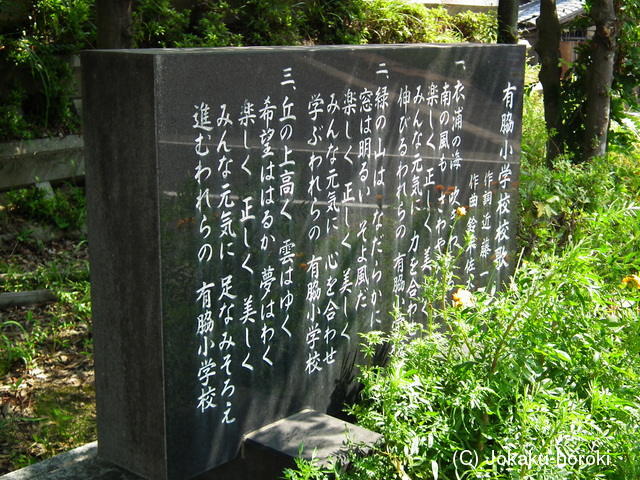 有脇小学校校歌
作詞 近藤一
作曲
一、衣浦の海 吹く
南の風も さわや
楽しく 正しく 美
みんな元気に 力を合わ
伸びるわれらの 有脇小
二、緑の山は なだらかに
窓は明るい そよ風だ
楽しく 正しく 美しく
みんな元気に 心を合わせ
学ぶわれらの 有脇小学校
三、丘の上高く 雲はゆく
希望ははるか 夢はわく
楽しく 正しく 美しく
みんな元気に 足なみそろえ
進むわれらの 有脇小学校
(C) Jokaku-horoki